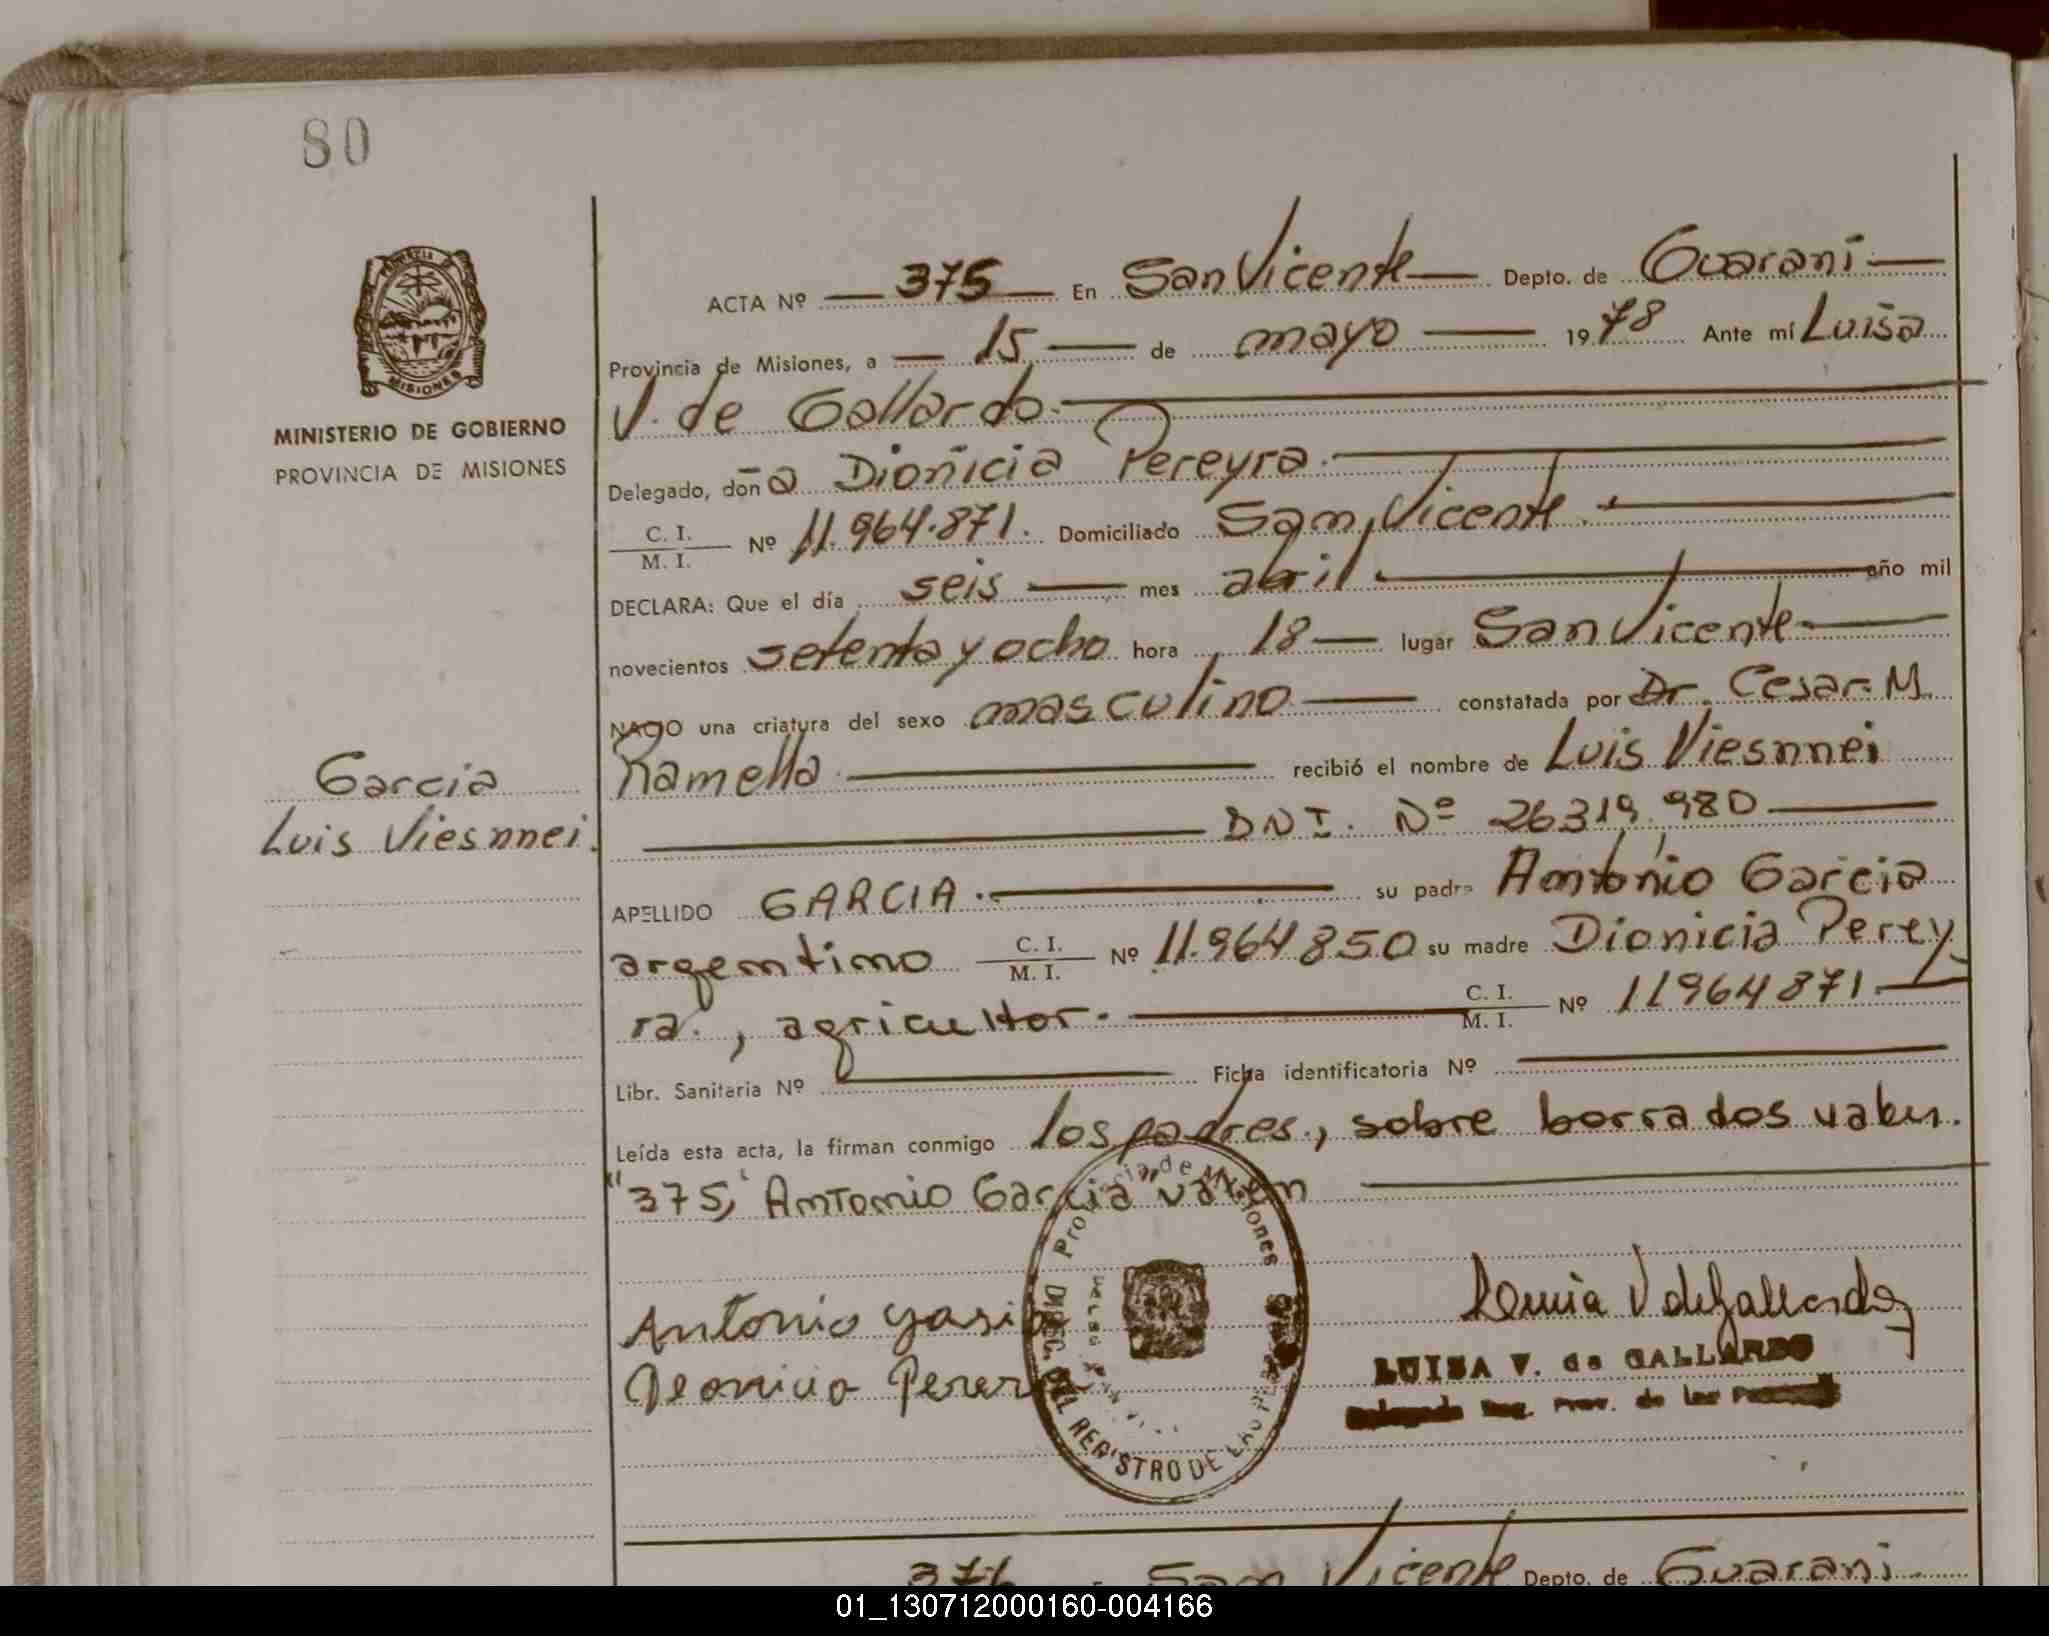 80
PROVINCIA DE
MISIONES
MINISTERIO DE GOBIERNO
PROVINCIA DE MISIONES
ACTA Nº 375 En San Vicente Depto. de Guaraní
Provincia de Misiones, a 15 de mayo 1978 Ante mí Luisa
V. de Gallardo.
Delegado, doña Dionicia Pereyra.
C. I. M. I. Nº 11.964.871. Domiciliado San Vicente.
DECLARA: Que el día seis mes abril año mil
novecientos setenta y ocho hora 18 lugar San Vicente
NACIO una criatura del sexo masculino constatada por Dr. Cesar M.
Ramella recibió el nombre de Luis Viesnnei
DNI. Nº 26319.980
Garcia
Luis Viesnnei.
APELLIDO GARCIA. su padre Antonio Garcia
argentino C. I. M. I. Nº 11.964850 su madre Dionicia Perey
ra., agricultor. C. I. M. I. Nº 11964871.
Libr. Sanitaria Nº Ficha identificatoria Nº
Leída esta acta, la firman conmigo los padres., sobre borrados valen.
"375," Antonio Garcia" valen
Provincia de Misiones
DIREC. DEL REGISTRO DE LAS
Antonio
Luisa V de Gallardo
LUISA V. de GALLARDO
Delegada Reg. Prov. de las
376 San Vicente Depto. de Guarani
01_130712000160-004166